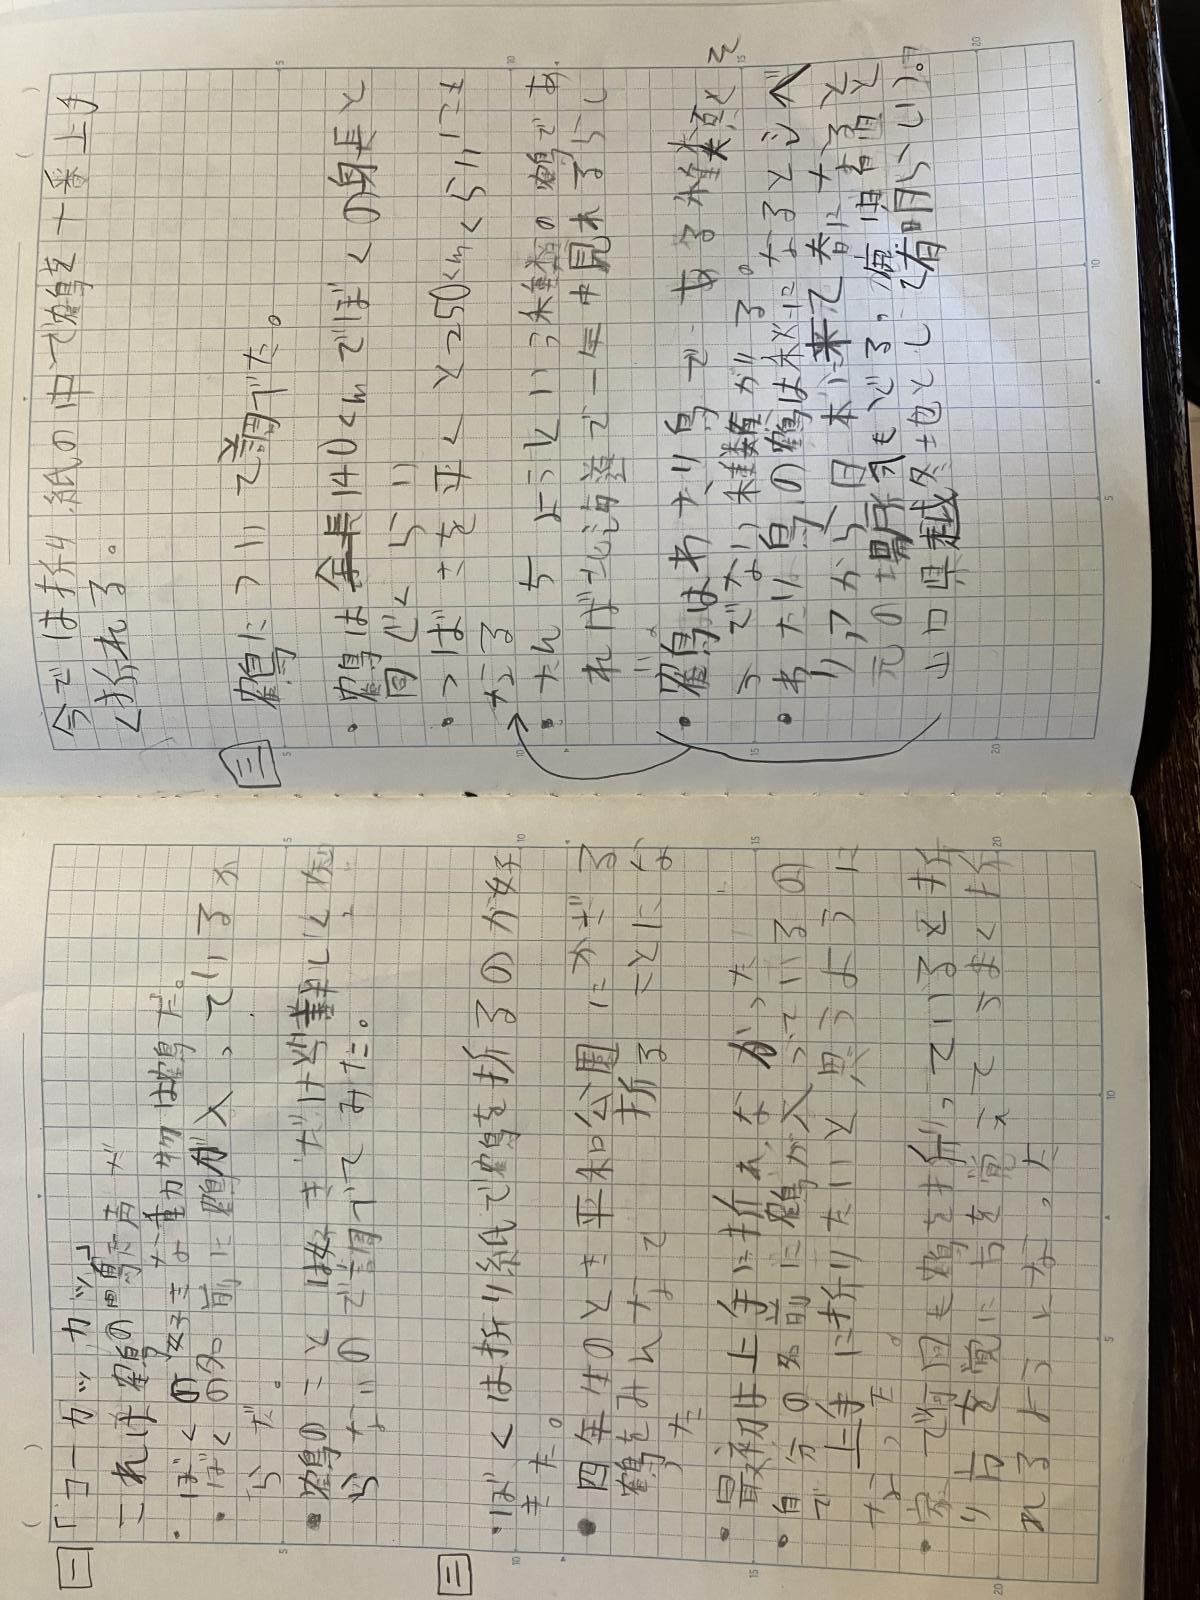 一
「コーカッカッ」
これは鶴の鳴き声だ
・ぼくの好きな動物は鶴だ。
・ぼくの名前に鶴が入っているか
らだ。
・鶴のことは好きだけど難しいし知
らないので調べてみた。
二
・ぼくは折り紙で鶴を折るのが好
きだ。
・四年生のとき平和公園にかざる
鶴をみんなで折ることにな
った
・最初は上手に折れなかった
・自分の名前に鶴が入っているの
で上手に折りたいと思うように
なった。
・家で何回も鶴を折っていると折
り方を覚えてうまく折
れるようになった
今では折り紙の中で鶴を一番上手
く折れる。
三
鶴について調べた。
・鶴は全長140cmでぼくの身長と
同じくらい
・つばさを平くと250cmくらいにも
なる
・たんちょうという種類の鶴であ
れば北海道で一年中見れるらし
い。
・鶴はわたり鳥であるが種類と
でない種類がある。
・わたり鳥の鶴は冬になるとシベ
リアから日本に来て春になると
元の場所へもどる。
山口県 越冬地として有明らしい)。